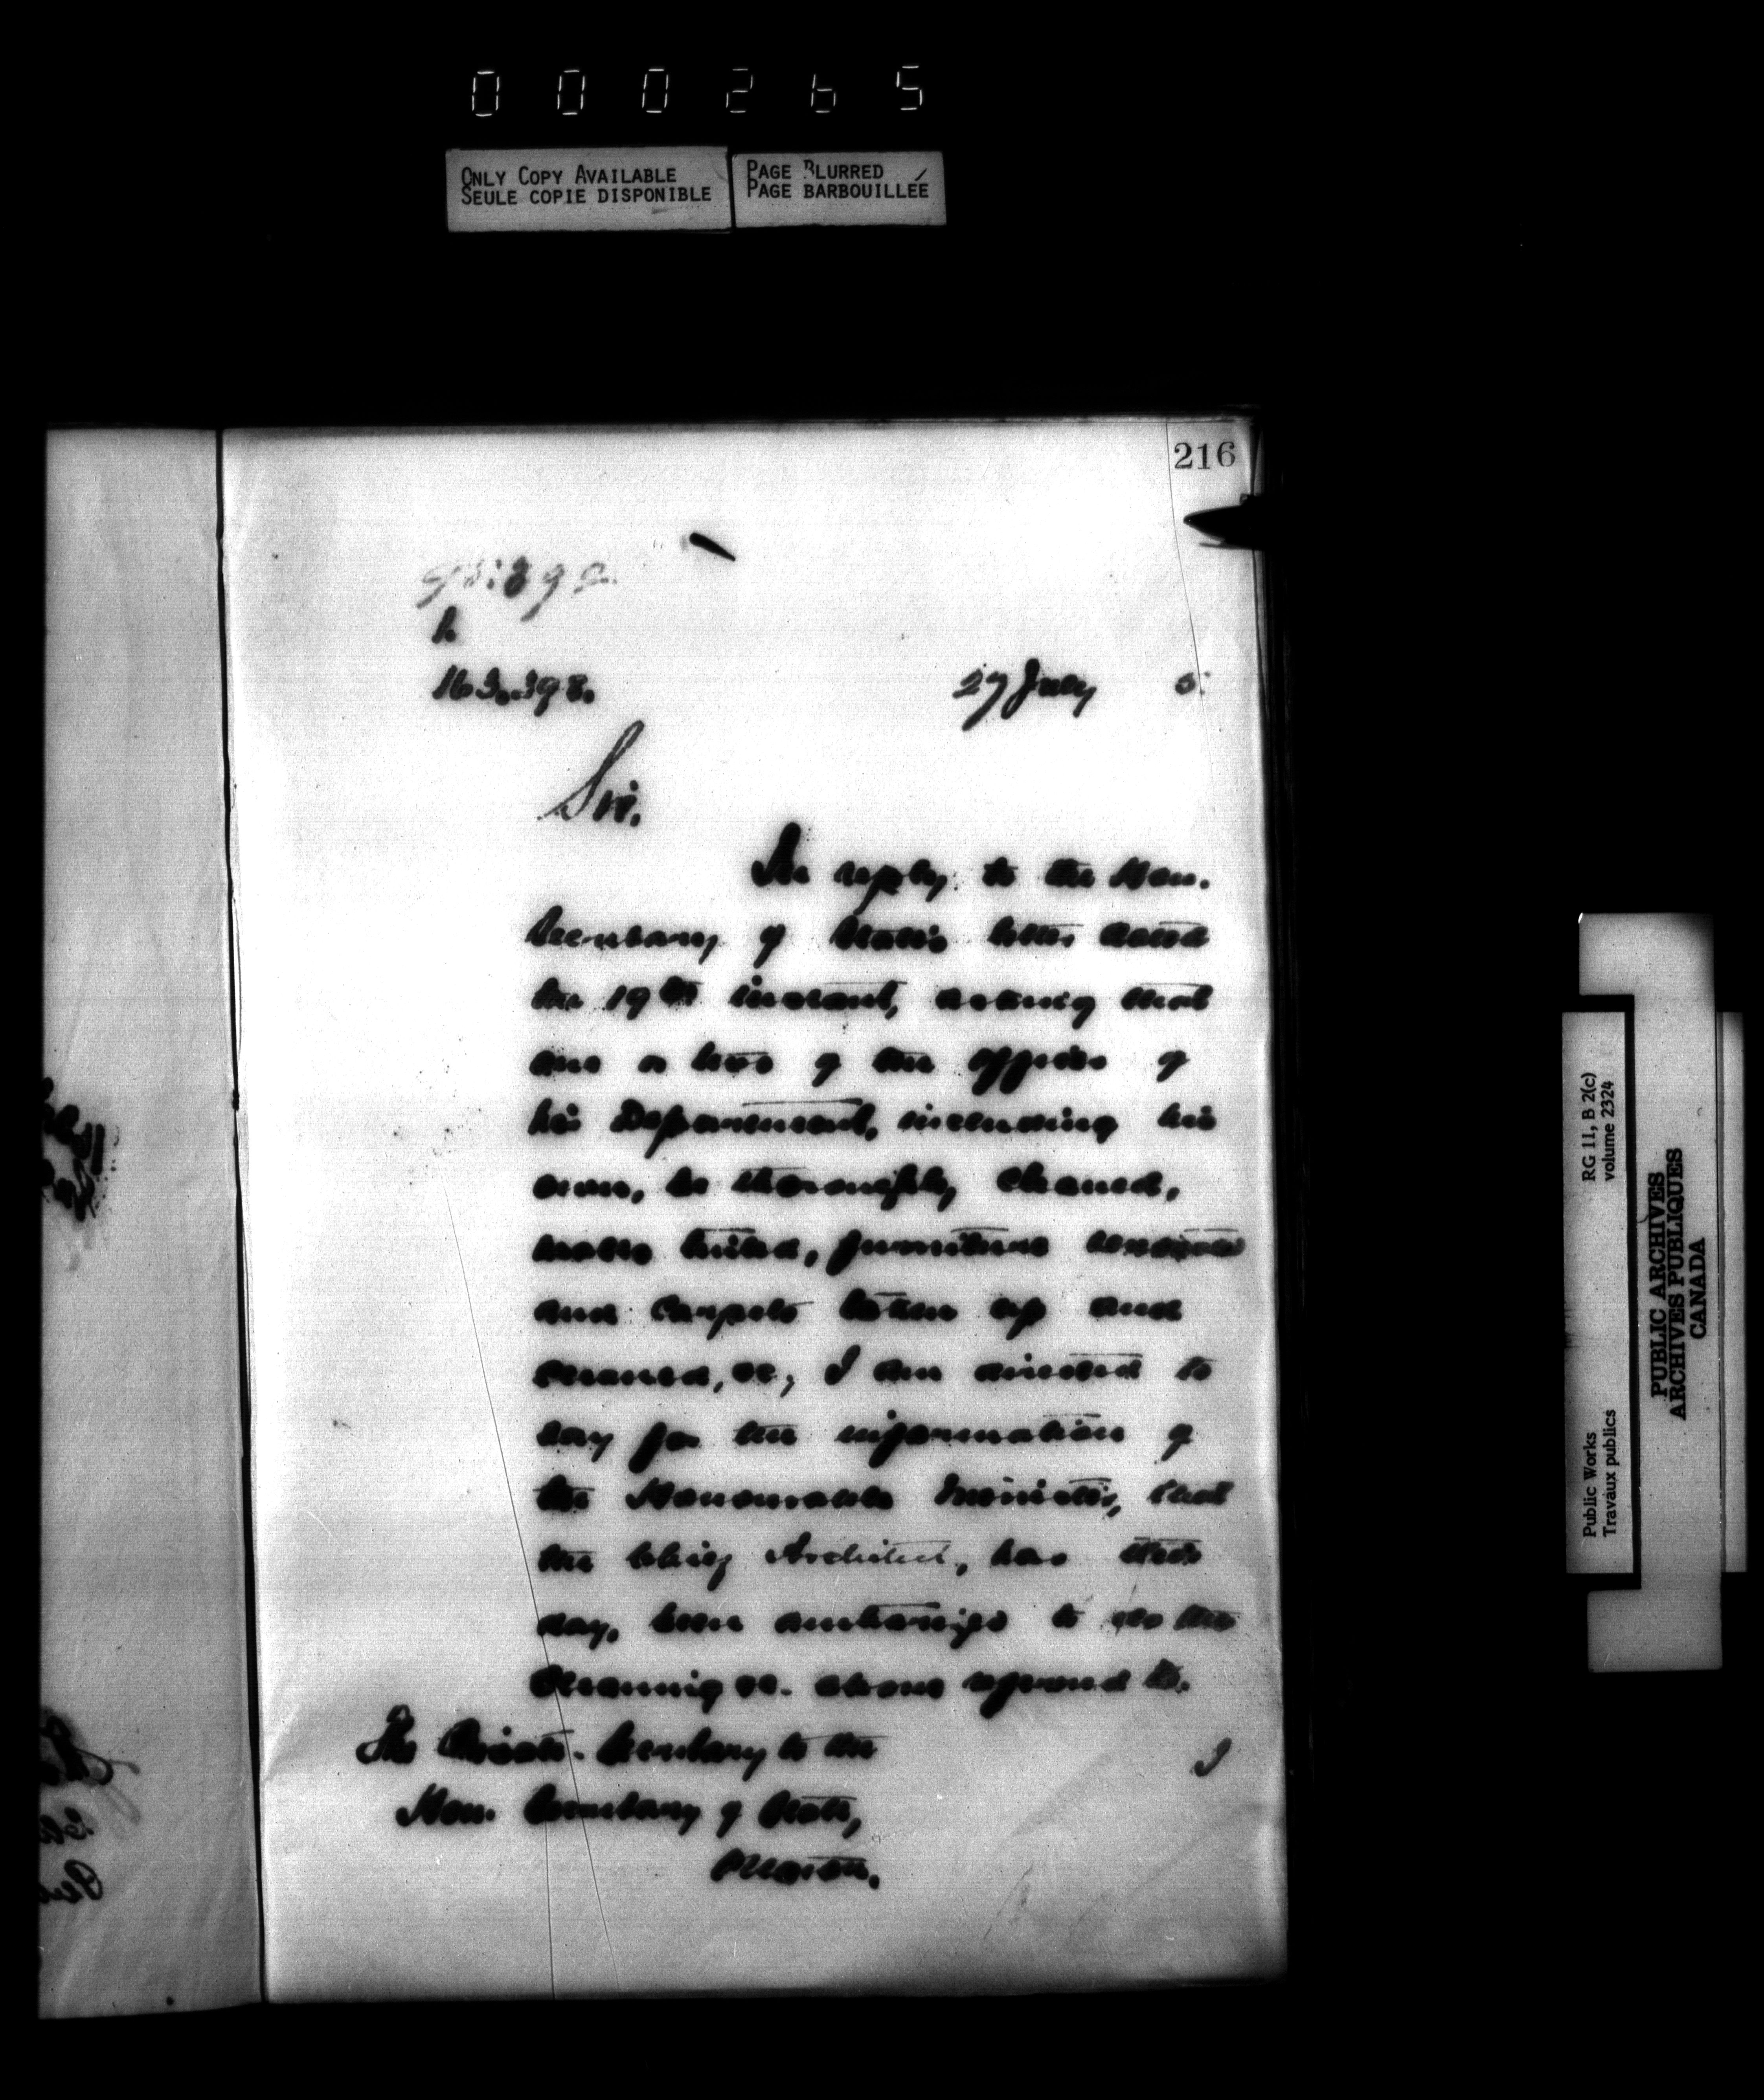 000265
ONLY COPY AVAILABLE
SEULE COPIE DISPONIBLE
PAGE BLURRED
PAGE BARBOUILLÉE
216
1.
163.398.
27 July 5
Sir.
In reply to the Hon.
Secretary of State's letter dated
the 19th instant, asking that
one or two of the offices of
his Department, including his
own, be thoroughly cleaned,
walls tinted, furniture
and carpets taken up and
cleaned, &c, I am directed to
say for the information of
the Honourable Minister, that
the Chief Architect, has this
day, been authorized to do the
cleaning &c. above referred to.
The Private Secretary to the
Hon. Secretary of State,
Ottawa.
I
RG 11, B 2(c)
volume 2324
Public Works
Travaux publics
PUBLIC ARCHIVES
ARCHIVES PUBLIQUES
CANADA